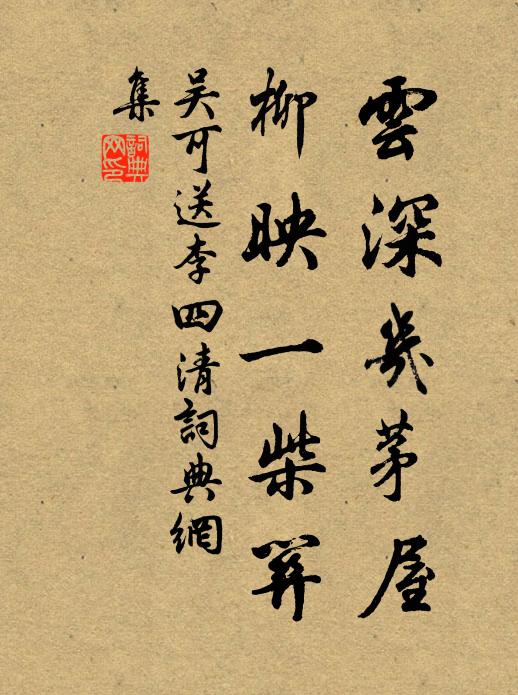 雲深幾茅屋
柳映一柴關
吳可送李四清詞典網
集
詞典
网印